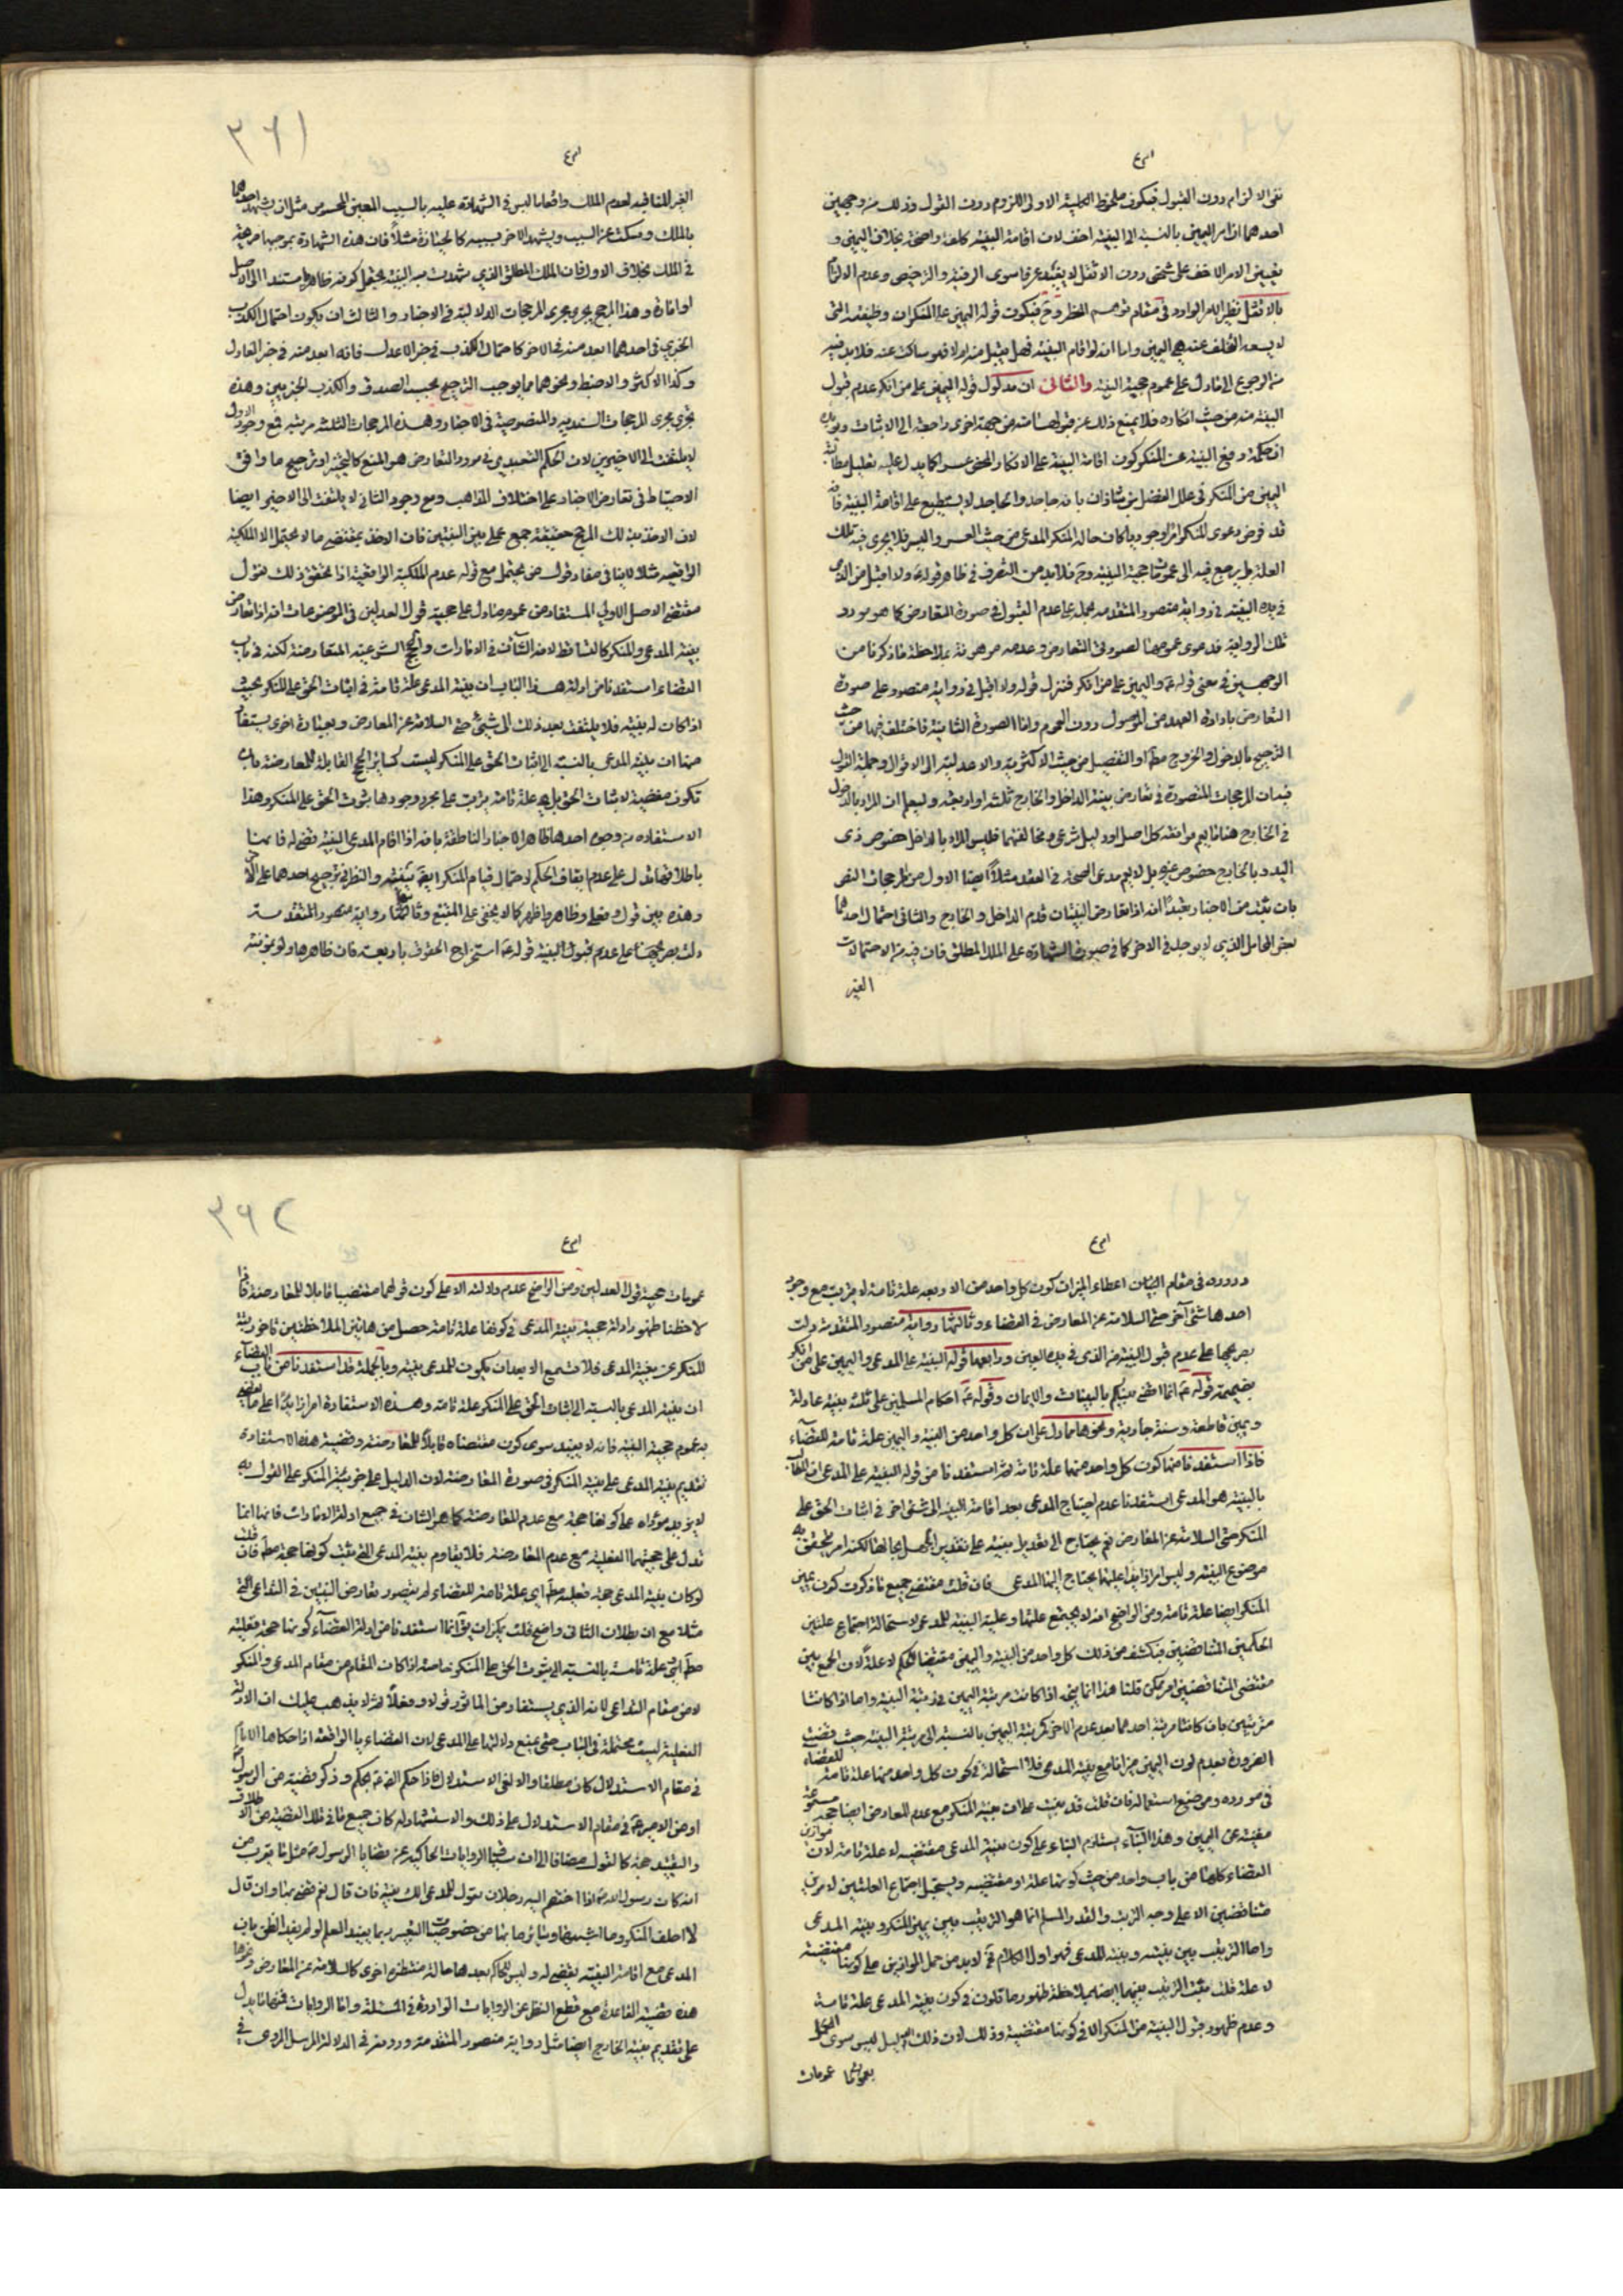 ٣٦١
نفى الالزام دون القبول فيكون ملحوظ الحلية الاولى اللزوم دون القول وذلك من وجهين
احدهما ان امر اليمين بالنسبة الى البينة اخف لان اقامة البينة كلفة واضحة بخلاف اليمين و
تعيين الامر الاخف على شخص دون الاثقل لا يفيد عرفا سوى الرخصة والترخيص وعدم الالزام
بالاثقل نظير الامر الوارد فى مقام توهم الحظر وح فيكون قوله اليمين على المنكر ان وظيفته التى
لا يسعه التخلف عنه هى اليمين واما انه لو اقام البينة فهل يقبل منه ام لا فهو ساكت عنه فلا بد فيه
من الرجوع الى ما دل على عموم حجية البينة والثانى ان مدلول قوله اليمين على من انكر عدم قبول
البينة منه من حيث انكاره فلا يمنع ذلك عن قبولها منه من جهة اخرى راجعة الى الاثبات ويؤيده
ان حكمة رفع البينة عن المنكر كون اقامة البينة على الانكار المحض عسرا كما يدل عليه تعليل مطالبة
اليمين من المنكر فى علل الفضل بن شاذان بانه جاحد والجاحد لا يستطيع على اقامة البينة فانه
قد فرض دعوى المنكر امرا وجوديا كان حاله المنكر المدعى من حيث العسر واليسر فلا يجرى فيه تلك
العلة بل يرجع فيه الى عمومات حجية البينة وح فلا بد من التصرف فى ظاهر قوله ع ولا اقبل من الذى
فى يده البينة فى رواية منصور المتقدمة بحمله على عدم القبول فى صورة التعارض كما هو مورد
تلك الرواية فدعوى عمومها لصورتى التعارض وعدمه موهونة بملاحظة ما ذكرنا من
الوجهين فى معنى قوله ع واليمين على من انكر فتنزل قوله ولا اقبل فى رواية منصور على صورة
التعارض بارادة العهد من الموصول دون العموم واما الصورة الثانية فاختلف فيها من حيث
الترجيح بالدخول والخروج مطلقا او التفصيل من حيث الاكثرية والاعدلية الى الاقوال وجملة القول
فيه ان المرجحات المتصورة فى تعارض بينة الداخل والخارج ثلثة او اربعة وليعلم ان المراد بالدخول
فى الخارج هنا ما يعم موافقة كل اصل او دليل شرعى ومخالفتهما فليس المراد بالداخل خصوص ذى
اليد وبالخارج خصوص غيره بل لا يعم مدعى الصحة فى العقد مثلا ايضا الاول من المرجحات النص
بان يثبت من الاخبار تعبدا انه اذا تعارض البينات قدم الداخل والخارج والثانى احتمال احدهما
بعض المحامل الذى لا يوجد فى الاخر كما فى صورة الشهادة على الملك المطلق فان فيه من الاحتمالات
الغير
الغير المنافية لعدم الملك واقعا ما ليس فى الشهادة عليه بالسبب المعين المحسوس مثل ان يشهد احدهما
بالملك ويسكت عن السبب ويشهد الاخر بسببه كالحيازة مثلا فان هذه الشهادة بموجبها صريحة
فى الملك بخلاف الاول فان الملك المطلق الذى شهدت به البينة يحتمل كونه ظاهريا مستندا الى الاصل
او امارة وهذا المرجح يجرى مجرى المرجحات الدلالية فى الاخبار والثالث ان يكون احتمال الكذب
الخبرى فى احدهما ابعد منه فى الاخر كاحتمال الكذب فى خبر الاعدل فانه ابعد منه فى خبر العادل
وكذا الاكثر والاضبط ونحوهما مما يوجب الترجيح بحسب الصدق والكذب الخبريين وهذه
تجرى مجرى المرجحات السندية والمنصوصية فى الاخبار وهذه المرجحات الثلثة مرتبة فمع وجود الاول
لا يلتفت الى الاخيرين لان الحكم التعبدى فى مورد التعارض هو المتبع كالتخيير او ترجيح ما وافق
الاحتياط فى تعارض الاخبار على اختلاف المذاهب ومع وجود الثانى لا يلتفت الى الاخير ايضا
لان الاخذ بذلك المرجح حقيقة جمع عملى بين البينتين فان الاخذ بمقتضى ما لا يحتمل الا الملكية
الواقعية مثلا لا ينافى مفاد قول من يحتمل مع قوله عدم الملكية الواقعية اذا تحقق ذلك فنقول
مقتضى الاصل الاولى المستفاد من عموم ما دل على حجية قول العدلين فى الموضوعات انه اذا تعارض
بينة المدعى والمنكر كالتساقط لانه الشان فى الامارات والحجج الشرعية المتعارضة لكنه فى باب
القضاء استفدنا من ادلة هذا الباب ان بينة المدعى علة تامة فى اثبات الحق على المنكر بحيث
اذا كان له بينة فلا يلتفت بعد ذلك الى شىء حتى السلامة عن المعارض وبعبارة اخرى يستفاد
منها ان بينة المدعى بالنسبة الى اثبات الحق على المنكر ليست كسائر الحجج القابلة للمعارضة بان
تكون مقتضية لاثبات الحق بل هى علة تامة يترتب على مجرد وجودها ثبوت الحق على المنكر وهذا
الاستفادة من وجوه احدها ظاهر الاخبار الناطقة بانه اذا اقام المدعى البينة قضى له فانها
باطلاقها تدل على عدم ايقاف الحكم لاحتمال قيام المنكر ايضا بينته والنظر فى ترجيح احدهما على الاخر
وهذه بين قول وفعل وظاهرها ظهر كما لا يخفى على المتتبع وثانيها رواية منصور المتقدمة
دلت بصريحها على عدم قبول البينة قوله ع استخراج الحقوق باربعة فان ظاهرها ولو بمؤنة
٣٦٢
وروده فى مقام البيان اعطاء الميزان كون كل واحد من الاربعة علة تامة لا يترتب مع وجود
احدها شىء آخر حتى السلامة عن المعارض فى القضاء وثالثها رواية منصور المتقدمة دلت
بصريحها على عدم قبول البينة من الذى فى يده العين ورابعها قوله البينة على المدعى واليمين على من انكر
بضميمة قوله ع انما اقضى بينكم بالبينات والايمان وقوله ع احكام المسلمين على ثلثة بينة عادلة
ويمين قاطعة وسنة جارية ونحوها مما دل على ان كل واحد من البينة واليمين علة تامة للقضاء
فاذا استفدنا منها كون كل واحد منهما علة تامة ثم استفدنا من قوله البينة على المدعى ان المطالب
بالبينة هو المدعى استفدنا عدم احتياج المدعى بعد اقامة البينة الى شىء اخر فى اثبات الحق على
المنكر حتى السلامة عن المعارض نعم يحتاج الى تعديل بينته على تقدير الجهل بحالها لكنه امر يتحقق به
موضوع البينة وليس امرا زايدا عليها يحتاج اليها المدعى فان قلت مقتضى جميع ما ذكرت كون يمين
المنكر ايضا علة تامة ومن الواضح انه لا يجتمع عليتها وعلية البينة للمدعى لاستحالة اجتماع علتين
لحكمين المتناقضين فيكشف من ذلك كل واحد من البينة واليمين مقتضيا للحكم لا علة لان الجمع بين
مقتضى المتناقضين امر ممكن قلنا هذا انما يتجه اذا كانت مرتبة اليمين فى مرتبة البينة واما اذا كانتا
مترتبتين بان كانت مرتبة احدهما بعد عدم الاخر كمرتبة اليمين بالنسبة الى مرتبة البينة حيث قضت
الضرورة بعدم كون اليمين ميزانا مع بينة المدعى فلا استحالة فى كون كل واحد منهما علة تامة للقضاء
فى مورده وموضع استعماله فان قلت قد بنيت على ان بينة المنكر مع عدم المعارض ايضا حجة مسموعة
مغنية عن اليمين وهذا البناء يستلزم البناء على كون بينة المدعى مقتضية لا علة تامة لان موازين
القضاء كلها من باب واحد من حيث كونها علة او مقتضية ويستحيل اجتماع العلتين لامرين
متناقضين الا على وجه الترتب والقدر المسلم انما هو الترتيب بين يمين المنكر وبينة المدعى
واما الترتيب بين بينته وبينة المدعى فهو اول الكلام فح لا بد من حمل الموازين على كونها مقتضية
لا علة قلت يثبت الترتيب بينهما ايضا بملاحظة ظهور ما قلناه فى كون بينة المدعى علة تامة
وعدم ظهور قبول البينة من المنكر الا فى كونها مقتضية وذلك لان ذلك الدليل ليس سوى العمل
بعموم ما عمومات
عمومات حجية قول العدلين ومن الواضح عدم دلالته الا على كون قولهما مقتضيا قابلا للمعارضة فاذا
لاحظنا ظهور ادلة حجية بينة المدعى فى كونها علة تامة حصل من هاتين الملاحظتين تاخر رتبة
المنكر عن بينة المدعى فلا تسمع الا بعد ان يكون للمدعى بينة وبالجملة قد استفدنا من باب القضاء
ان بينة المدعى بالنسبة الى اثبات الحق على المنكر علة تامة وهذه الاستفادة امر زايد على ما يقضى
به عموم حجية البينة فانه لا يفيد سوى كون مقتضاه قابلا للمعارضة وقضية هذه الاستفادة
تقديم بينة المدعى على بينة المنكر فى صورة المعارضة لان الدليل على حجية بينة المنكر على القول به
لا يزيد مؤداه على كونها حجة مع عدم المعارضة كما هو الشان فى جميع ادلة الامارات فانها انما
تدل على حجيتها الفعلية مع عدم المعارضة فلا يقاوم بينة المدعى التى ثبت كونها حجة مطلقا فان قلت
لو كان بينة المدعى حجة فعلية مطلقا اى علة تامة للقضاء لم يتصور تعارض البينتين فى التداعى التى
مثلا مع ان بطلان الثانى واضح قلت يمكن ان يق انما استفدنا من ادلة القضاء كونها حجة فعلية
مطلقا اى علة تامة بالنسبة الى ثبوت الحق على المنكر خاصة اذا كان المقام من مقام المدعى والمنكر
لا من مقام التداعى لانه الذى يستفاد من الماثور قولا وفعلا ثم لا يذهب عليك ان الادلة
الفعلية ليست محتملة فى الباب حتى يمنع دلالتها على المدعى لان القضاء بالواقعة اذا حكاها الامام
فى مقام الاستدلال كان مطلقا والا لغى الاستدلال فاذا حكم الصادق ع بحكم وذكر قضية من الرسول ص
او من الامير ع فى مقام الاستدلال على ذلك والاستشهاد له كان جميع ما فى تلك القضية من الاطلاق
والتقييد حجة كالقول مضافا الى ان فى الروايات الحاكية عن قضايا الرسول ص مثل ما يقرب من
انه كان رسول الله ص اذا اختصم اليه رجلان يقول للمدعى الك بينة فان قال نعم قضى بها وان قال
لا احلف المنكر وما اشبهها وسائر ما بها من خصوصيات التعبير ربما يفيد العلم لو لم يفد الظن بان
المدعى مع اقامة البينة يقضى له وليس للحاكم بعدها حالة منتظرة اخرى كالسلامة عن المعارض وغيرها
هذه قضية القاعدة مع قطع النظر عن الروايات الواردة فى المسئلة واما الروايات فمنها ما يدل
على تقديم بينة الخارج ايضا مثل رواية منصور المتقدمة ودونه فى الدلالة المرسل المروى فى